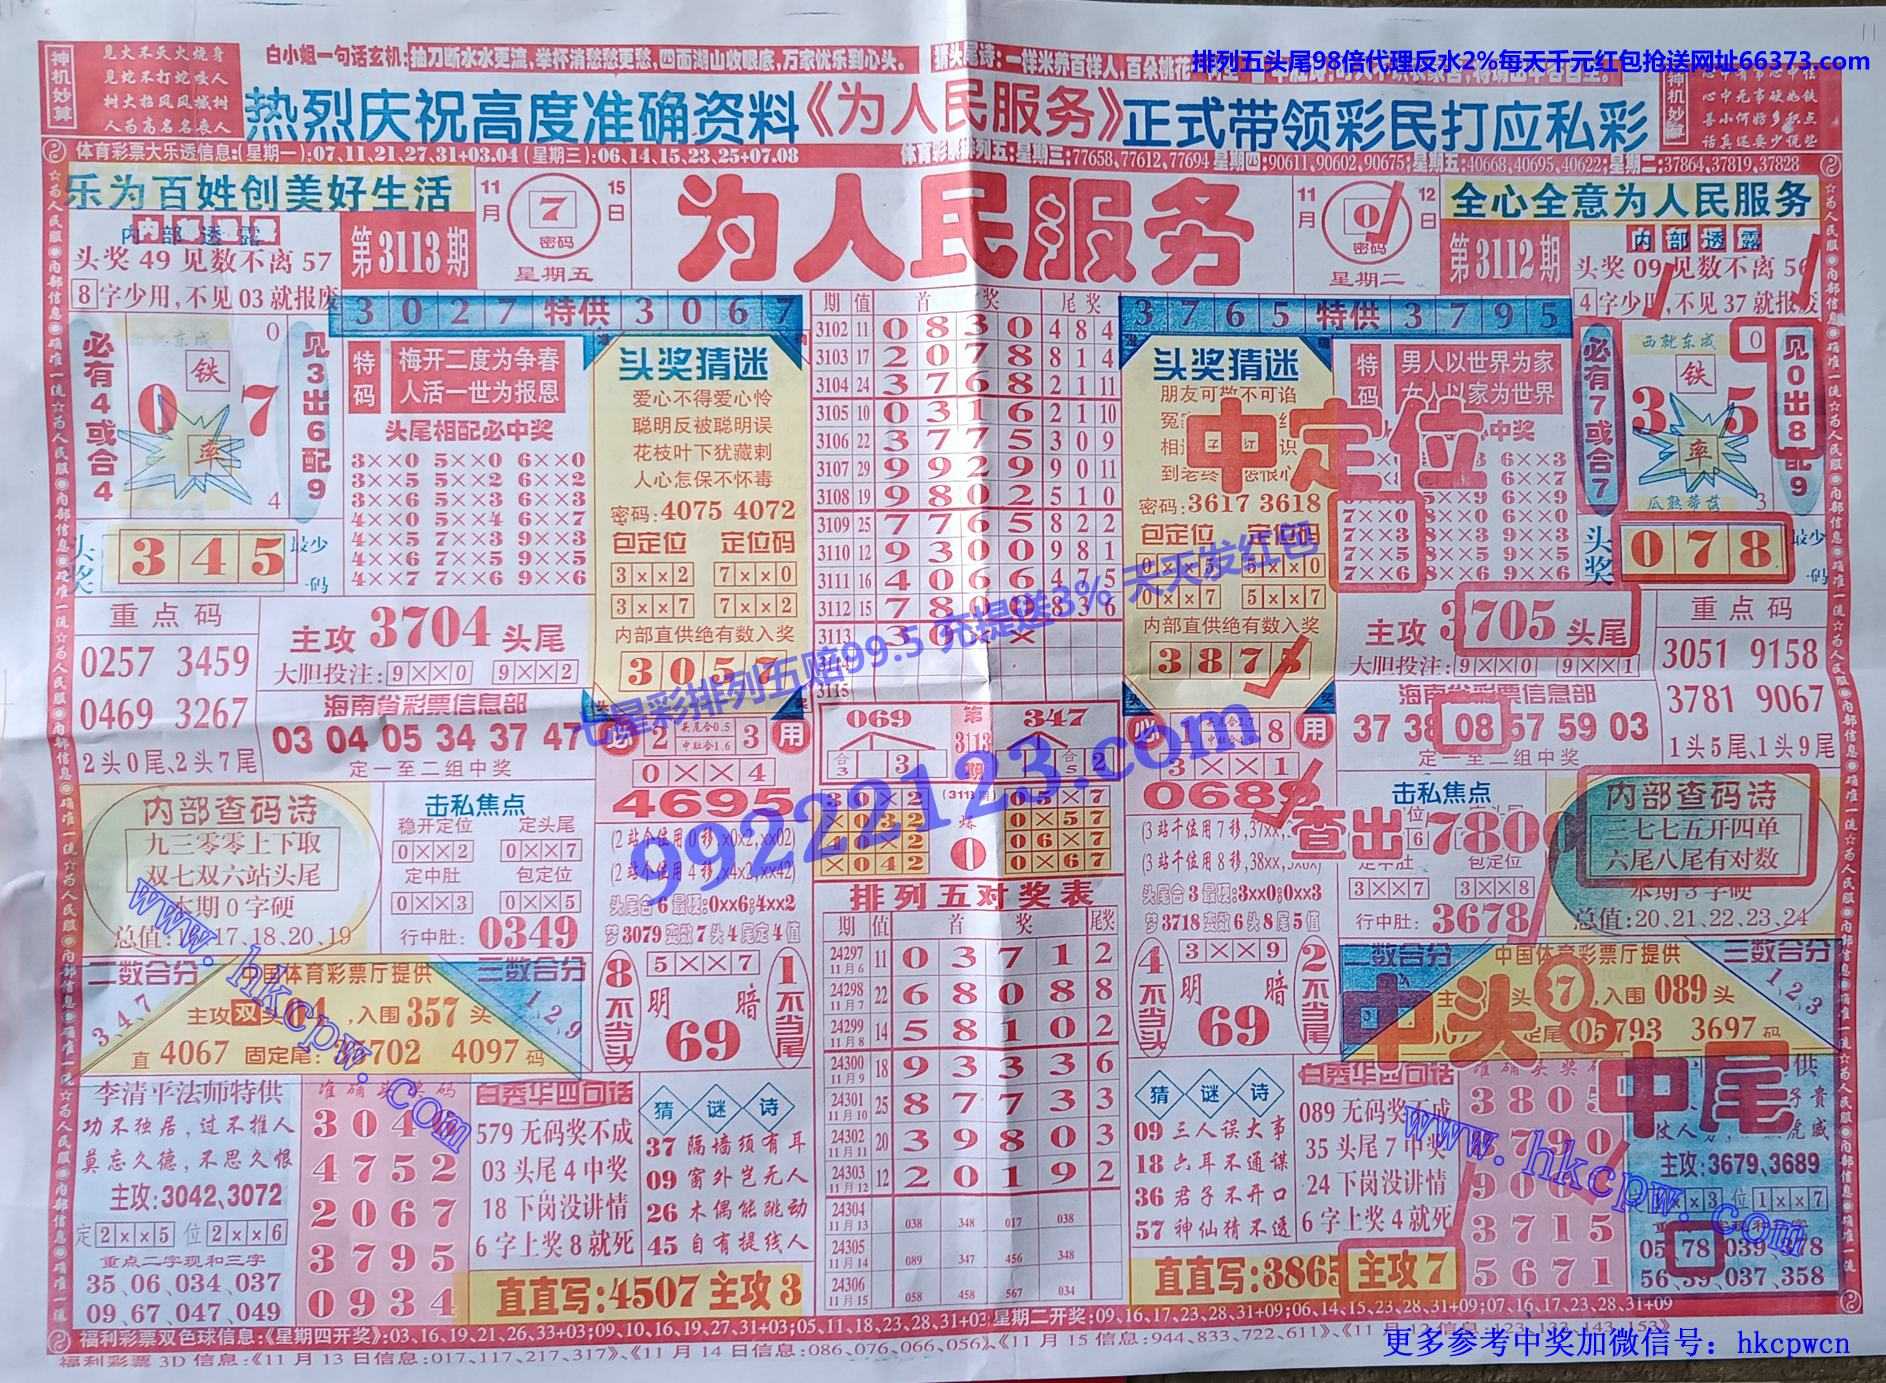 排列五头尾98倍代理反水2%每天千元红包抢送网址66373.com
神机妙算
见火不灭火烧身
见蛇不打蛇咬人
树大招风风撼树
人为高名名丧人
白小姐一句话玄机:抽刀断水水更流,举杯消愁愁更愁,四面湖山收眼底,万家忧乐到心头。
热烈庆祝高度准确资料《为人民服务》正式带领彩民打应私彩
体育彩票大乐透信息:(星期一):07,11,21,27,31+03.04 (星期三):06,14,15,23,25+07.08
星期三:77658,77612,77694 星期四:90611,90602,90675;星期五:40668,40695,40622;星期二:37864,37819,37828
乐为百姓创美好生活
11月 7 密码 15日
星期五
为人民服务
11月 0 密码 12日
星期二
全心全意为人民服务
内部透露
头奖 49 见数不离 57
8 字少用,不见 03 就报废
第3113期
第3112期
内部透露
头奖 09 见数不离 56
4 字少用,不见 37 就报废
3027 特供 3067
必有4或合4
0
铁
0 7
率
4
见3出6配9
特码
梅开二度为争春
人活一世为报恩
头尾相配必中奖
3××0 5××0 6××0
3××3 5××2 6××2
3××6 5××3 6××5
4××0 5××4 6××7
4××5 7××3 9××3
4××6 7××5 9××5
4××7 7××6 9××6
头奖 345 最少一码
头奖猜迷
爱心不得爱心怜
聪明反被聪明误
花枝叶下犹藏刺
人心怎保不怀毒
密码:4075 4072
包定位 定位码
3××2 7××0
3××7 7××2
内部直供绝有数入奖
3057
重点码
0257 3459
0469 3267
2头0尾、2头7尾
主攻 3704 头尾
大胆投注: 9××0 9××2
海南省彩票信息部
03 04 05 34 37 47
定一至二组中奖
期 值 首奖 尾奖
3102 11 0830 484
3103 17 2078 814
3104 24 3768 2111
3105 10 0316 2110
3106 22 3775 309
3107 29 9929 9011
3108 19 9802 510
3109 25 7765 822
3110 12 9300 981
3111 16 4066 475
3112 15 7800 836
3113
3115
3765 特供 3795
头奖猜迷
朋友可敬不可谄
密码:3617 3618
包定位 定位码
0××5 5××0
0××7 5××7
内部直供绝有数入奖
3875
特码
男人以世界为家
女人以家为世界
中定位
7××0
7××3
7××5
7××6
必有7或合7
西就东成 0
铁
3 5
率
瓜熟蒂落 3
见0出8配9
头奖 078 最少一码
主攻 3705 头尾
大胆投注: 9××0 9××1
重点码
3051 9158
3781 9067
1头5尾、1头9尾
海南省彩票信息部
37 38 08 57 59 03
定一至二组中奖
七星彩排列五赔99.5 充提送3% 天天发红包
99222123.com
必 2 头尾合0.5 中肚合1.6 3 用
0××4
4695
(2站个位用0移,x0x2,xx02)
(2站个位用4移,x4x2,xx42)
头尾合6最硬:0xx6;4xx2
梦3079变数7头4尾定4值
8不当头
5××7
明 暗
69
1不当尾
069 第3113期 347
合3 3 合5 2
30×2 05×7
×032 0×57
40×2 06×7
×042 0×67
爆 0
必 1 8 用
3××1
0689
(3站千位用7移,37xx
(3站千位用8移,38xx
头尾合3最硬:3xx0;0xx3
梦3718变数6头8尾5值
4不当头
3××9
明 暗
69
2不当尾
内部查码诗
九三零零上下取
双七双六站头尾
本期0字硬
17、18、20、19
击私焦点
稳开定位 定头尾
0××2 0××7
定中肚 包定位
0××3 0××5
行中肚: 0349
击私焦点
查出7800
3××7 3××8
行中肚: 3678
内部查码诗
三七七五开四单
六尾八尾有对数
本期3字硬
总值:20、21、22、23、24
二数合分
3、4、7
中国体育彩票厅提供
三数合分
1、2、9
,入围 357 头
直 4067 固定尾: 4097 码
排列五对奖表
期 值 首奖 尾奖
24297 11月6 11 0371 2
24298 11月7 22 6808 8
24299 11月8 14 5810 2
24300 11月9 18 9333 6
24301 11月10 25 8773 3
24302 11月11 20 3980 3
24303 11月12 12 2019 2
24304 11月13 038 348 017 038
24305 11月14 089 347 456 348
24306 11月15 058 458 567 034
二数合分
中国体育彩票厅提供
三数合分
1、2、3
中头
,入围 089 头
3697 码
中尾
李清平法师特供
功不独居,过不推人
莫忘久德,不思久恨
主攻:3042、3072
定 2××5 位 2××6
重点二字现和三字
35、06、034、037
09、67、047、049
准确头奖码
4752
2067
3795
0934
白秀华四句话
579 无码奖不成
03 头尾 4 中奖
18 下岗没讲情
6 字上奖 8 就死
猜谜诗
37 隔墙须有耳
09 窗外岂无人
26 木偶能跳动
45 自有提线人
直直写:4507 主攻 3
猜谜诗
09 三人误大事
18 六耳不通谋
36 君子不开口
57 神仙猜不透
白秀华四句话
089 无码奖不成
35 头尾 7 中奖
24 下岗没讲情
6 字上奖 4 就死
直直写:3865 主攻 7
3790
3715
5671
主攻:3679、3689
56、39、037、358
www.hkcpw.com
www.hkcpw.com
福利彩票双色球信息:《星期四开奖》:03,16,19,21,26,33+03;09,10,16,19,27,31+03;05,11,18,23,28,31+03 星期二开奖:09,16,17,23,28,31+09;06,14,15,23,28,31+09;07,16,17,23,28,31+09
福利彩票3D信息:《11月13日信息:017,117,217,317》、《11月14日信息:086,076,066,056》、《11月15信息:944,833,722,611》、《11月12信息:123,133,143,153》
更多参考中奖加微信号：hkcpwcn